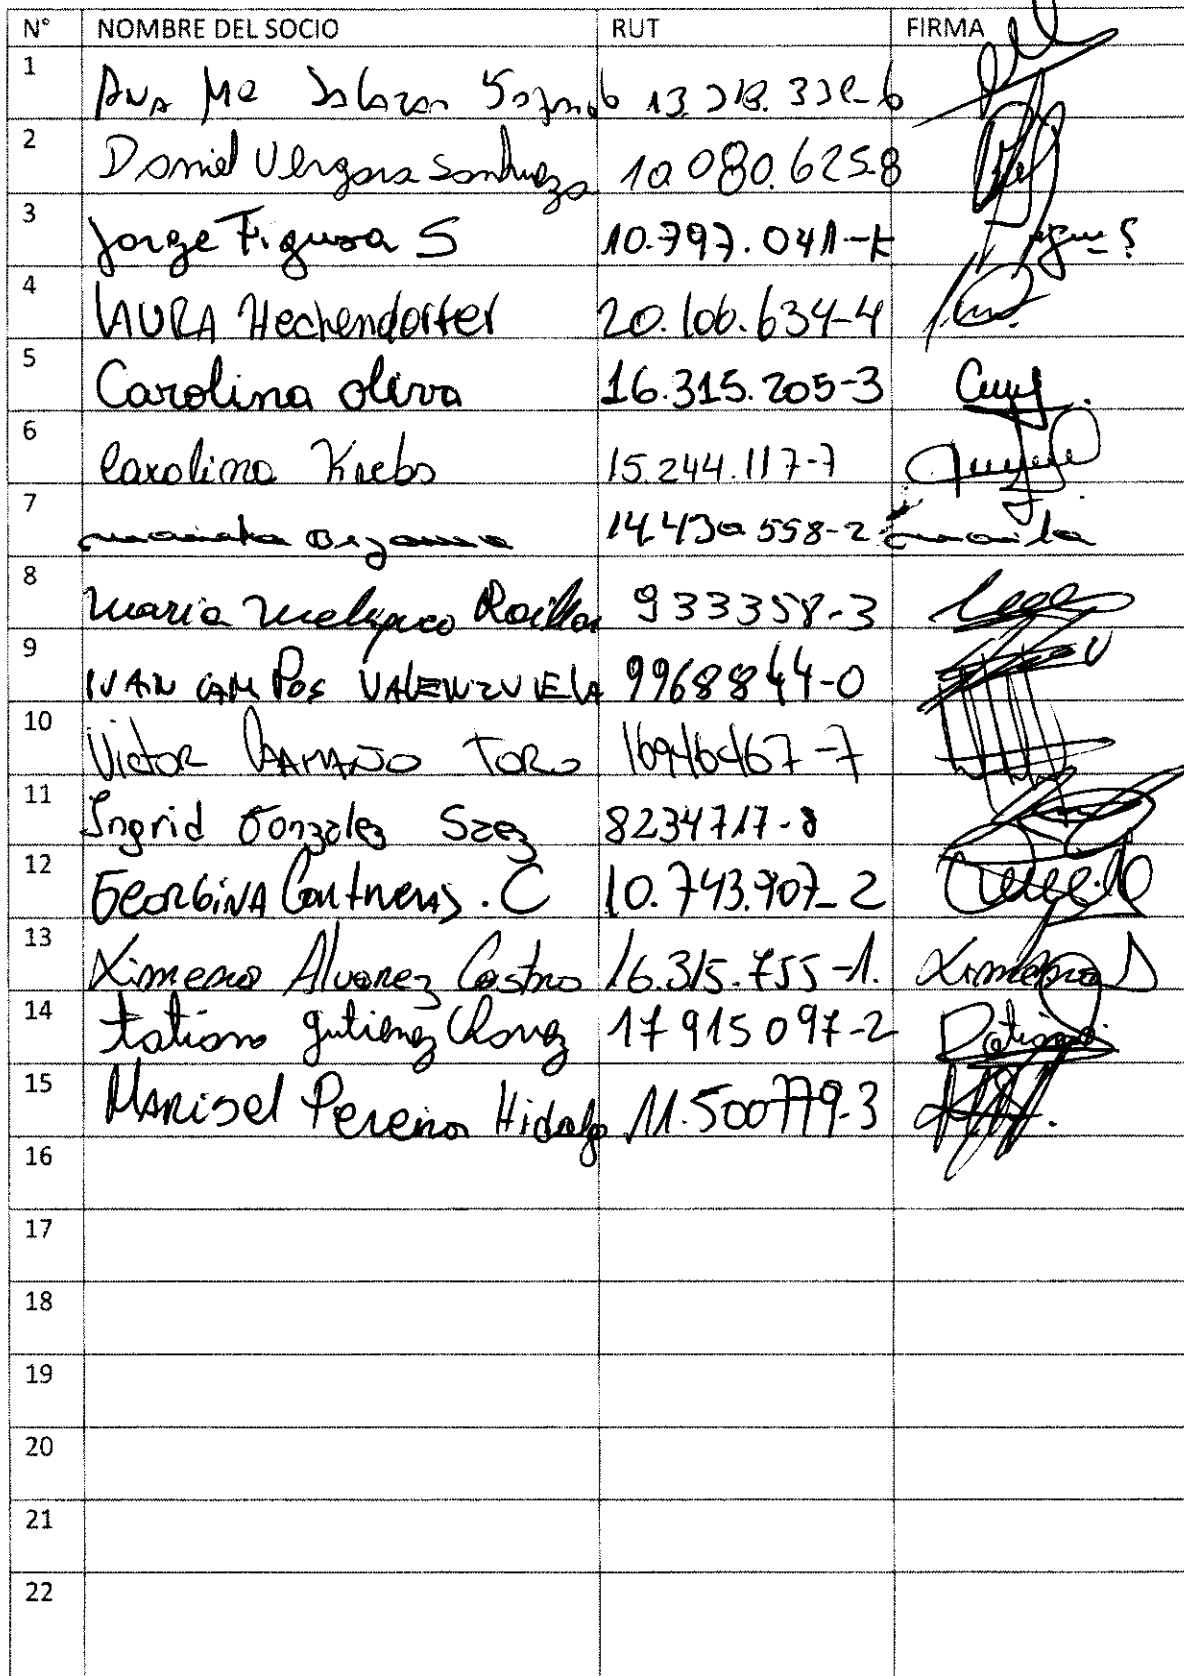 N° NOMBRE DEL SOCIO RUT FIRMA
1 Ana Ma Salazar 13.318.33
2 Daniel Vergara Sanhueza 10.080.625-8
3 Jorge Figueroa S 10.797.041-K
4 LAURA Hechendorfer 20.106.634-4
5 Carolina oliva 16.315.205-3
6 Carolina Krebs 15.244.117-7
7 14.430.558-2
8 Maria Melipan 933358-3
9 IVAN CAMPOS VALENZUELA 9968844-0
10 Victor CAAMAÑO TORO 16946467-7
11 Ingrid Gonzalez Saez 8234717-8
12 GEORGINA Contreras. C 10.743.907-2
13 Ximena Alvarez Castro 16.315.755-1. Ximena
14 tatiana gutierrez Chavez 17 915 097-2 Tatiana
15 Marisel Pereira Hidalgo 11.500779-3
16
17
18
19
20
21
22